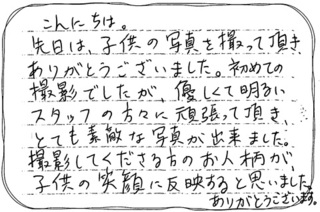 こんにちは。
先日は、子供の写真を撮って頂き、
ありがとうございました。初めての
撮影でしたが、優しくて明るい
スタッフの方々に頑張って頂き、
とても素敵な写真が出来ました。
撮影してくださる方のお人柄が
子供の笑顔に反映すると思いました。
ありがとうございます。